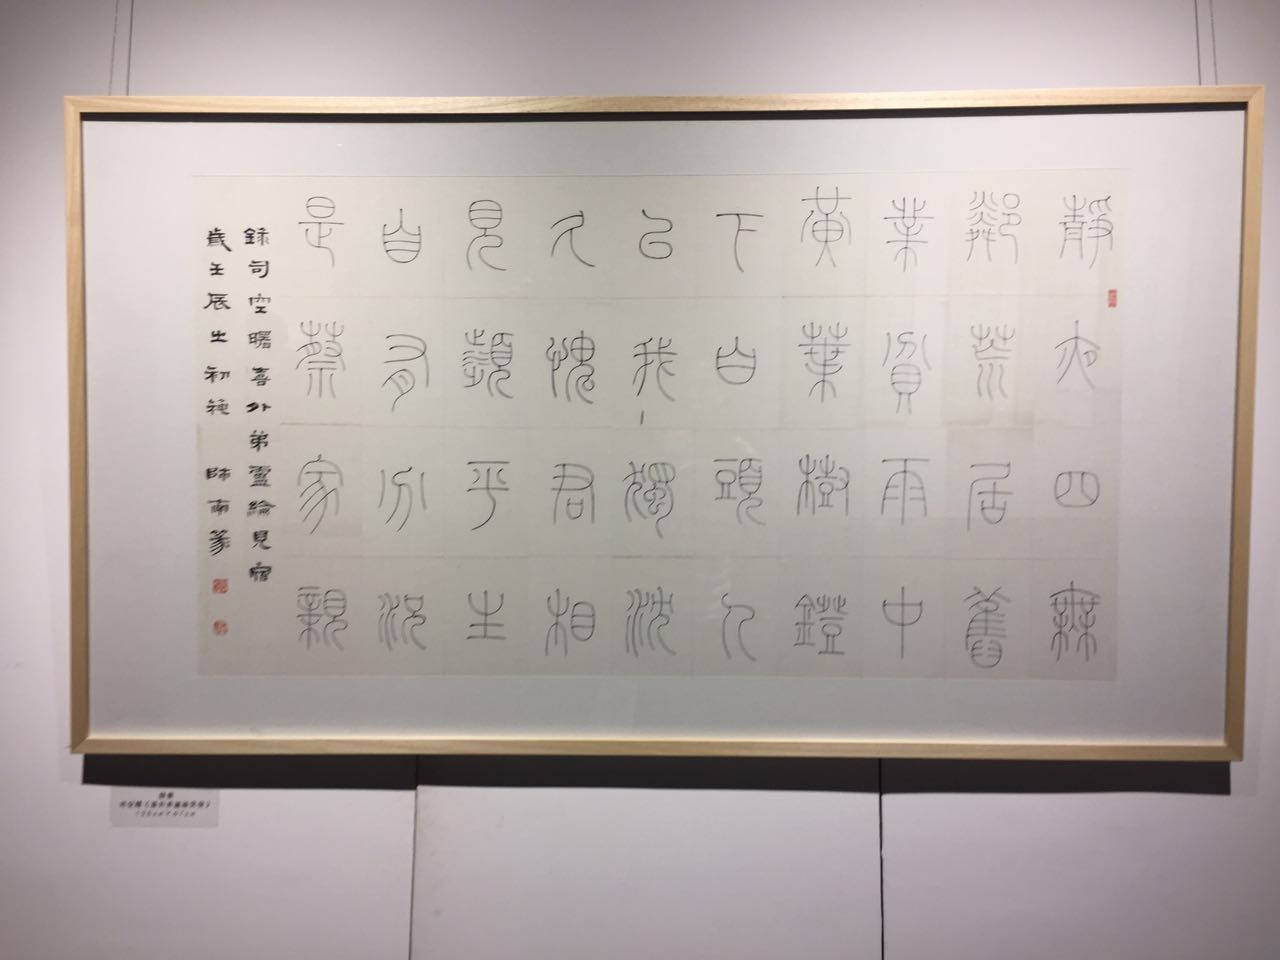 靜夜四無
鄰荒居舊
業貧雨中
黃葉樹鐙
下白頭人
㠯我獨沈
久愧君相
見頻平生
自有分況
是蔡家親
錄司空曙喜外弟盧綸見宿
歲壬辰之初 師南篆